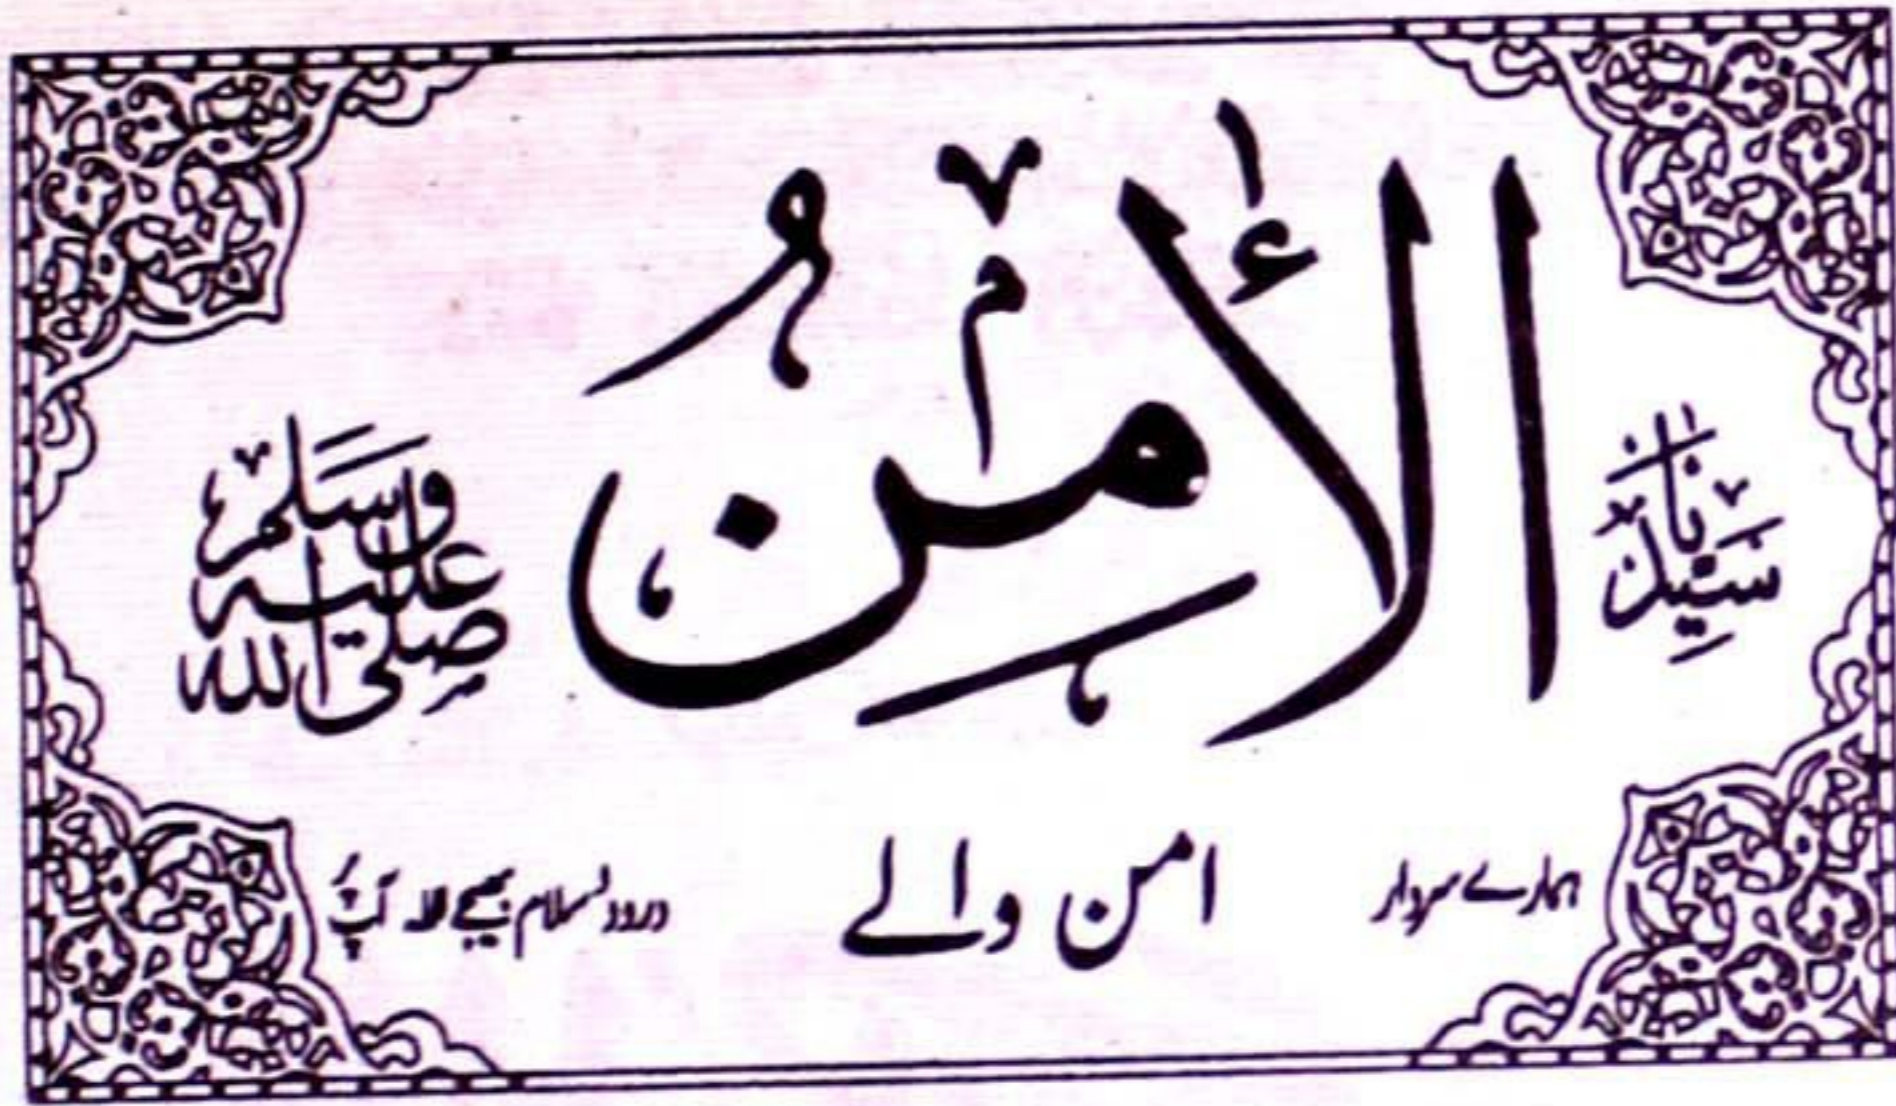 سَيِّدُنَا الْأٰمِنُ صَلَّى اللّٰه عَلَيْهِ وَسَلَّمَ
ہمارے سردار امن والے درود و سلام بھیجے اللہ آپ پر